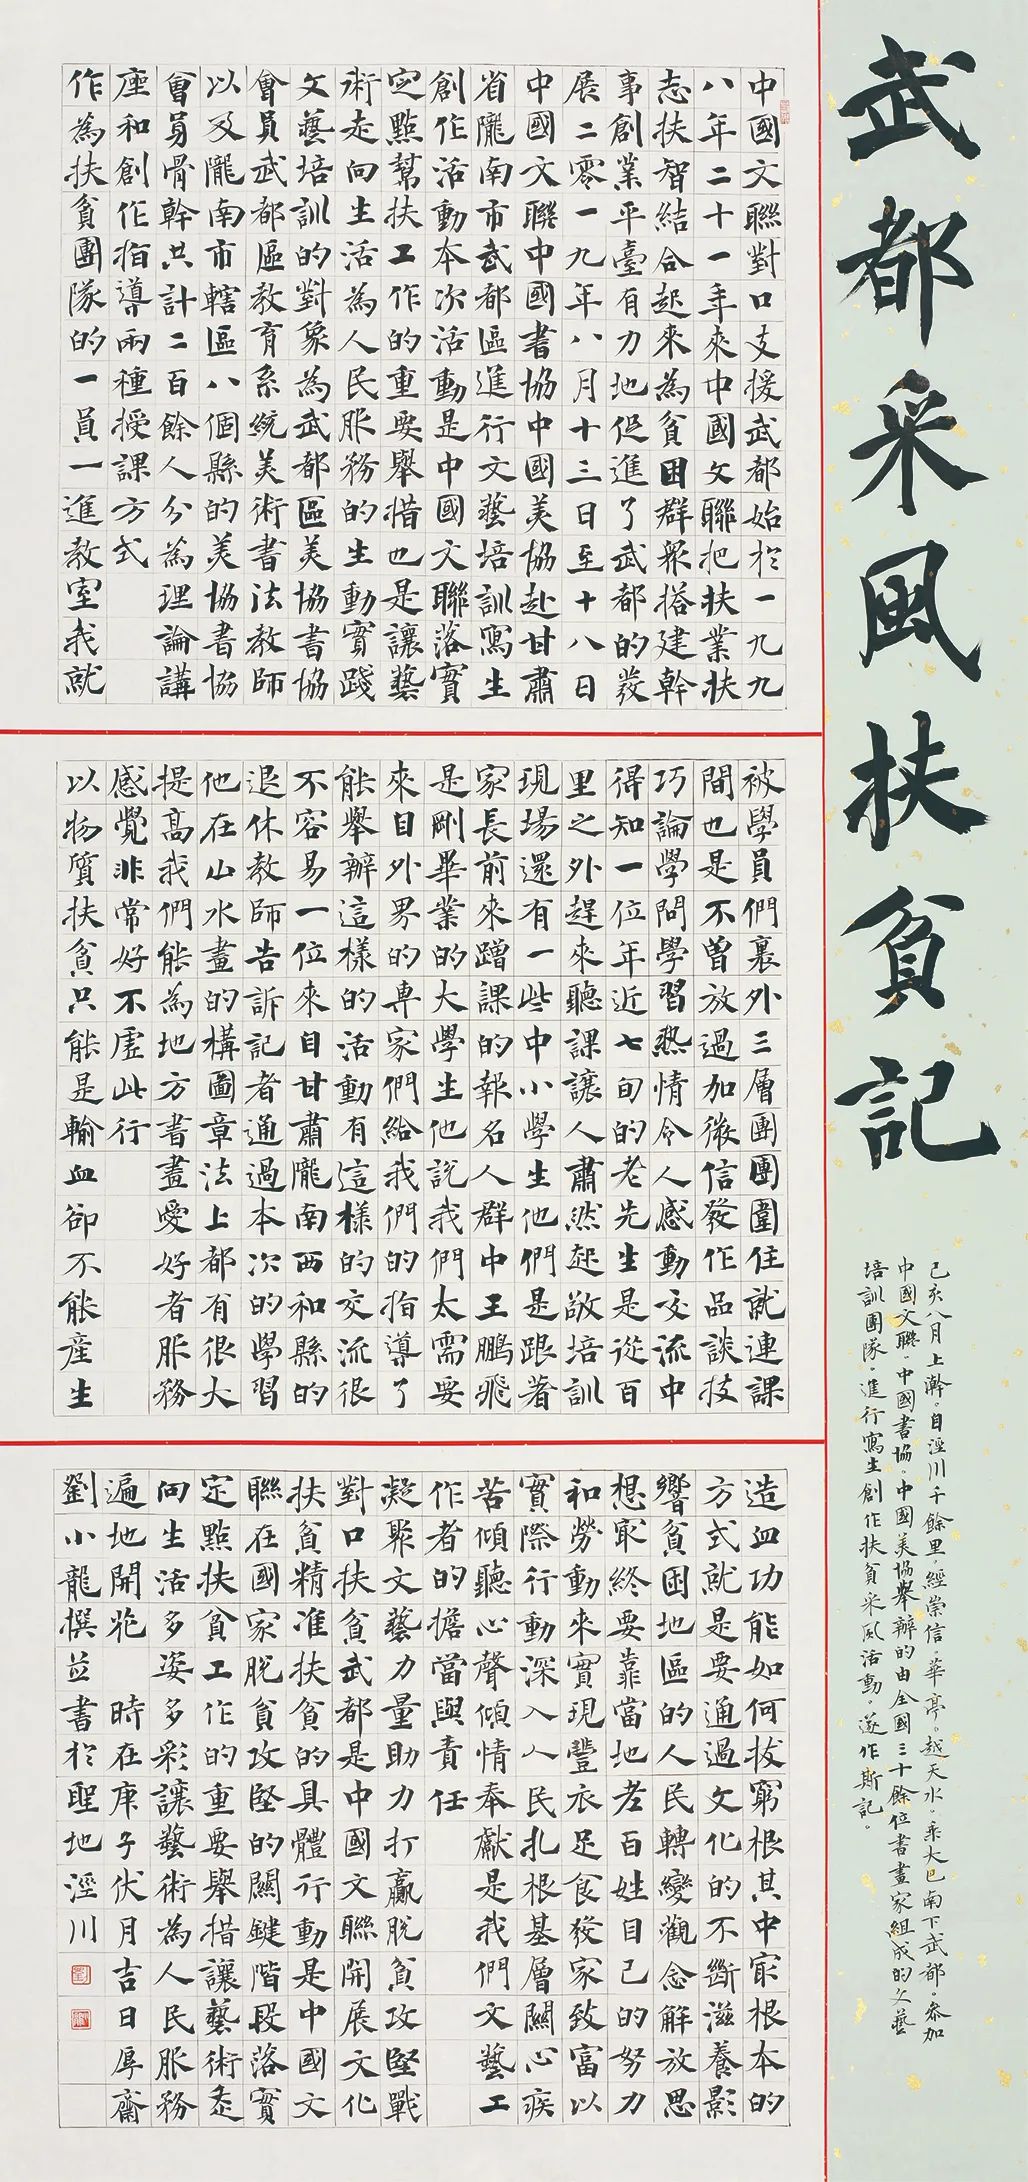 武都采風扶貧記
己亥八月上澣。自涇川千餘里。經崇信華亭。越天水。乘大巴南下武都。參加
中國文聯。中國書協。中國美協舉辦的由全國三十餘位書畫家組成的文藝
培訓團隊。進行寫生創作扶貧采風活動。遂作斯記。
中國文聯對口支援武都始於一九九
八年二十一年來中國文聯把扶業扶
志扶智結合起來為貧困群眾搭建幹
事創業平臺有力地促進了武都的發
展二零一九年八月十三日至十八日
中國文聯中國書協中國美協赴甘肅
省隴南市武都區進行文藝培訓寫生
創作活動本次活動是中國文聯落實
定點幫扶工作的重要舉措也是讓藝
術走向生活為人民服務的生動實踐
文藝培訓的對象為武都區美協書協
會員武都區教育系統美術書法教師
以及隴南市轄區八個縣的美協書協
會員骨幹共計二百餘人分為理論講
座和創作指導兩種授課方式
作為扶貧團隊的一員一進教室我就
被學員們裏外三層團團圍住就連課
間也是不曾放過加微信發作品談技
巧論學問學習熱情令人感動交流中
得知一位年近七旬的老先生是從百
里之外趕來聽課讓人肅然起敬培訓
現場還有一些中小學生他們是跟著
家長前來蹭課的報名人群中王鵬飛
是剛畢業的大學生他說我們太需要
來自外界的專家們給我們的指導了
能舉辦這樣的活動有這樣的交流很
不容易一位來自甘肅隴南西和縣的
退休教師告訴記者通過本次的學習
他在山水畫的構圖章法上都有很大
提高我們能為地方書畫愛好者服務
感覺非常好不虛此行
以物質扶貧只能是輸血卻不能產生
造血功能如何拔窮根其中最根本的
方式就是要通過文化的不斷滋養影
響貧困地區的人民轉變觀念解放思
想最終要靠當地老百姓自己的努力
和勞動來實現豐衣足食發家致富以
實際行動深入人民扎根基層關心疾
苦傾聽心聲傾情奉獻是我們文藝工
作者的擔當與責任
凝聚文藝力量助力打贏脫貧攻堅戰
對口扶貧武都是中國文聯開展文化
扶貧精准扶貧的具體行動是中國文
聯在國家脫貧攻堅的關鍵階段落實
定點扶貧工作的重要舉措讓藝術走
向生活多姿多彩讓藝術為人民服務
遍地開花 時在庚子伏月吉日厚齋
劉小龍撰並書於聖地涇川